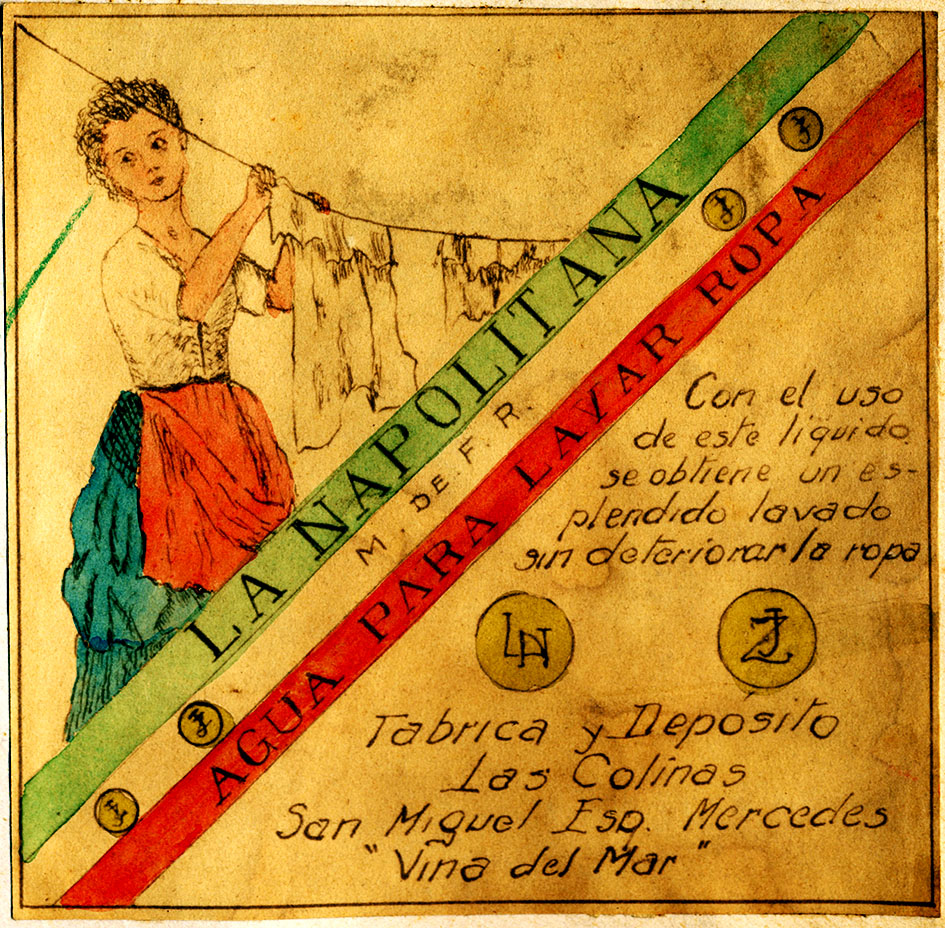 LA NAPOLITANA
M. DE. F. R.
AGUA PARA LAVAR ROPA
Con el uso
de este líquido
se obtiene un es-
plendido lavado
sin deteriorar la ropa
LN
Fabrica y Depósito
Las Colinas
San Miguel Esq. Mercedes
"Viña del Mar"